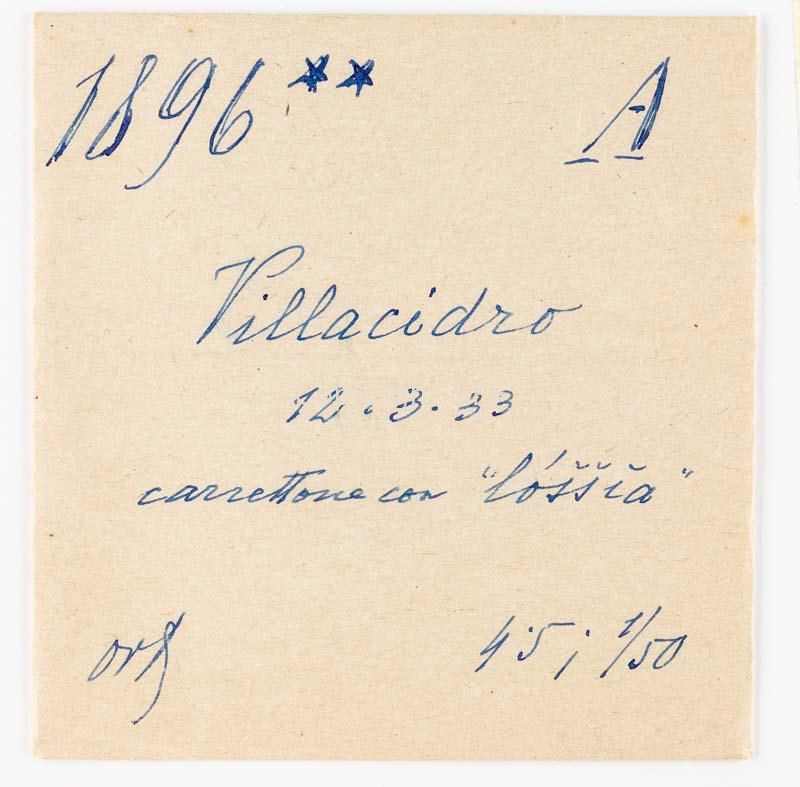 1896 ** A
Villacidro
12.3.33
carrettone con "lóššĭa"
4·5; 1/50